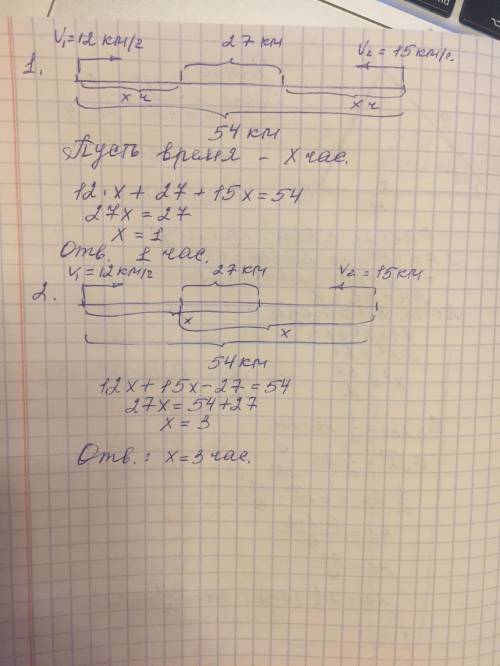 V₁=12 км/г 27 км V₂=15 км/г.
1.
х ч х ч
54 км
Пусть время - х час.
12·х + 27 + 15х = 54
27х = 27
х = 1
Отв. 1 час.
V₁=12 км/г 27 км V₂=15 км
2.
х
х
54 км
12х + 15х - 27 = 54
27х = 54+27
х = 3
Отв.: х = 3 час.